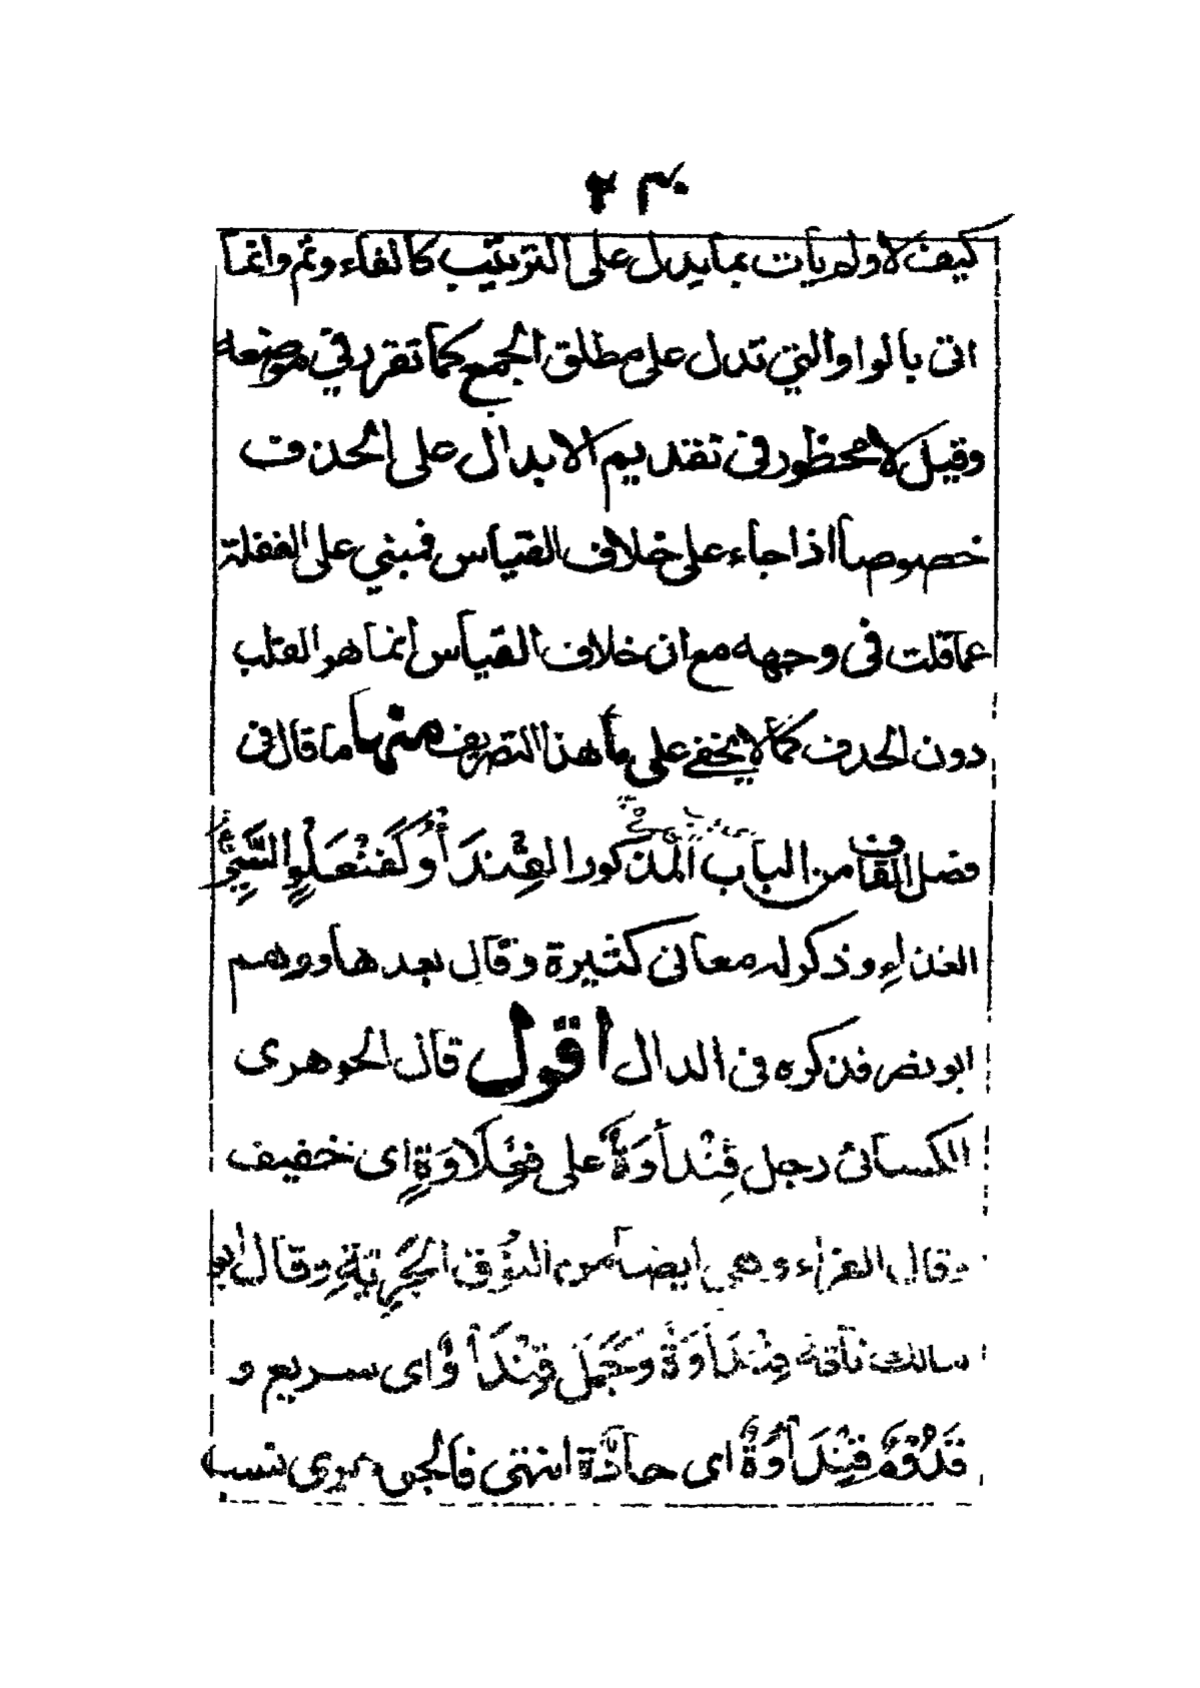 كيف لا ولم يأت بما يدل على الترتيب كالفاء وثم وانما
اتى بالواو التي تدل على مطلق الجمع كما تقرر في موضعه
وقيل لا محظور في تقديم الابدال على الحذف
خصوصاً اذا جاء على خلاف القياس فمبني على الغفلة
عما قلت في وجهه مع ان خلاف القياس انما هو القلب
دون الحذف كما لا يخفى على ماهذا التصريف منها ما قال في
فصل القاف من الباب المذكور القِنْدَأْوُ كَفِنْعَلْوٍ السَّيِّئُ
الغذاء وذكر له معاني كثيرة وقال بعدها ووهم
ابو نصر فذكره في الدال اقول قال الجوهرى
الكسائى رجل قِنْدَأْوَةٌ على فِعْلَاوَةٍ اى خفيف
وقال الفراء وهي ايضاً من النُّوق الجَرِيّةِ وقال ابو
مالك ناقة قِنْدَأْوَةٌ وَجَمَلٌ قِنْدَأْوٌ اى سريع و
قَدُوْمٌ قِنْدَأْوَةٌ اى حادَّة انتهى فالجوهرى نسب